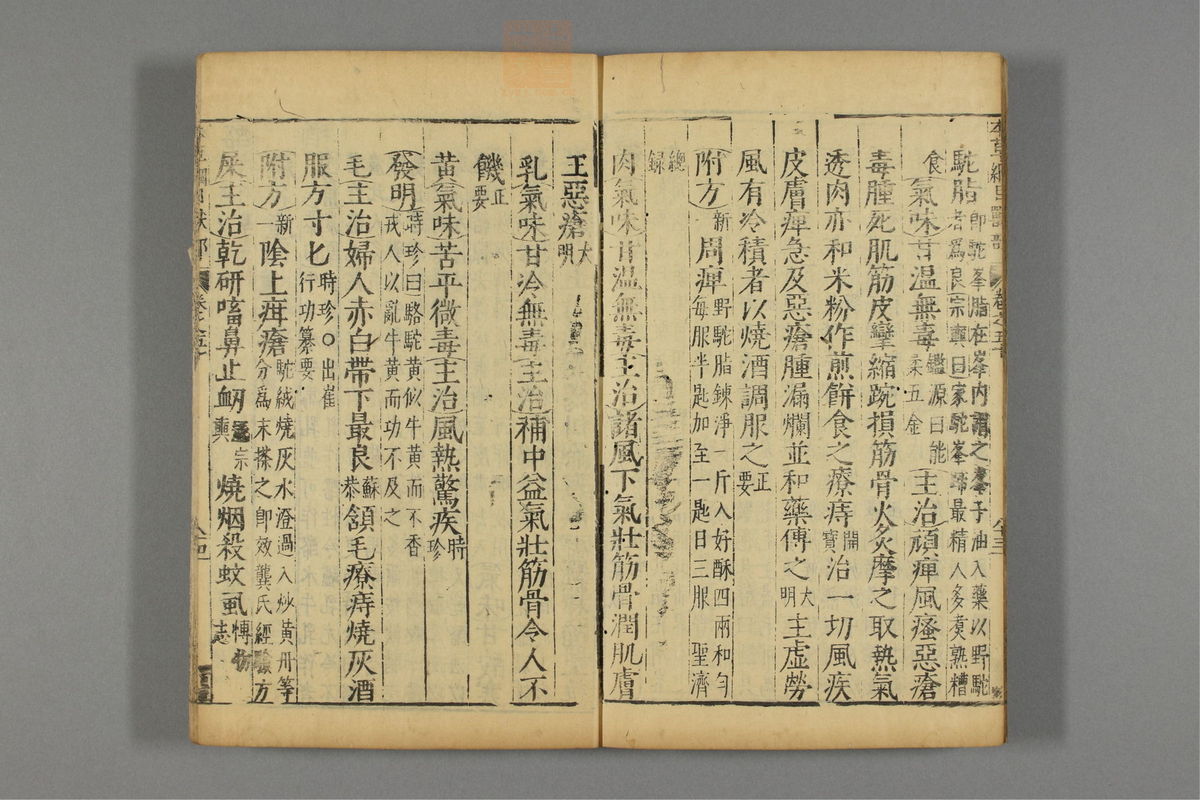 駝脂即駝峯脂在峯內謂之峯子油入藥以野駝者爲良宗奭曰家駝峯蹄最精人多煑熟糟
食氣味甘温無毒鏡源曰能柔五金主治頑痺風瘙惡瘡
毒腫死肌筋皮攣縮踠損筋骨火炙摩之取熱氣
透肉亦和米粉作煎餅食之療痔開寶治一切風疾
皮膚痺急及惡瘡腫漏爛並和藥傅之大明主虛勞
風有冷積者以燒酒調服之正要
附方新一周痺野駝脂鍊淨一斤入好酥四兩和勻每服半匙加至一匙日三服 聖濟
總錄
肉氣味甘温無毒主治諸風下氣壯筋骨潤肌膚
主惡瘡大明
乳氣味甘冷無毒主治補中益氣壯筋骨令人不
饑正要
黃氣味苦平微毒主治風熱驚疾時珍
發明時珍曰駱駝黃似牛黃而不香戎人以亂牛黃而功不及之
毛主治婦人赤白帶下最良蘇恭頷毛療痔燒灰酒
服方寸匕時珍○出崔行功纂要
附方新一陰上疳瘡駝絨燒灰水澄過入炒黃丹等分爲末搽之即效龔氏經驗方
屎主治乾研㗜鼻止衂宗奭燒烟殺蚊虱博物志